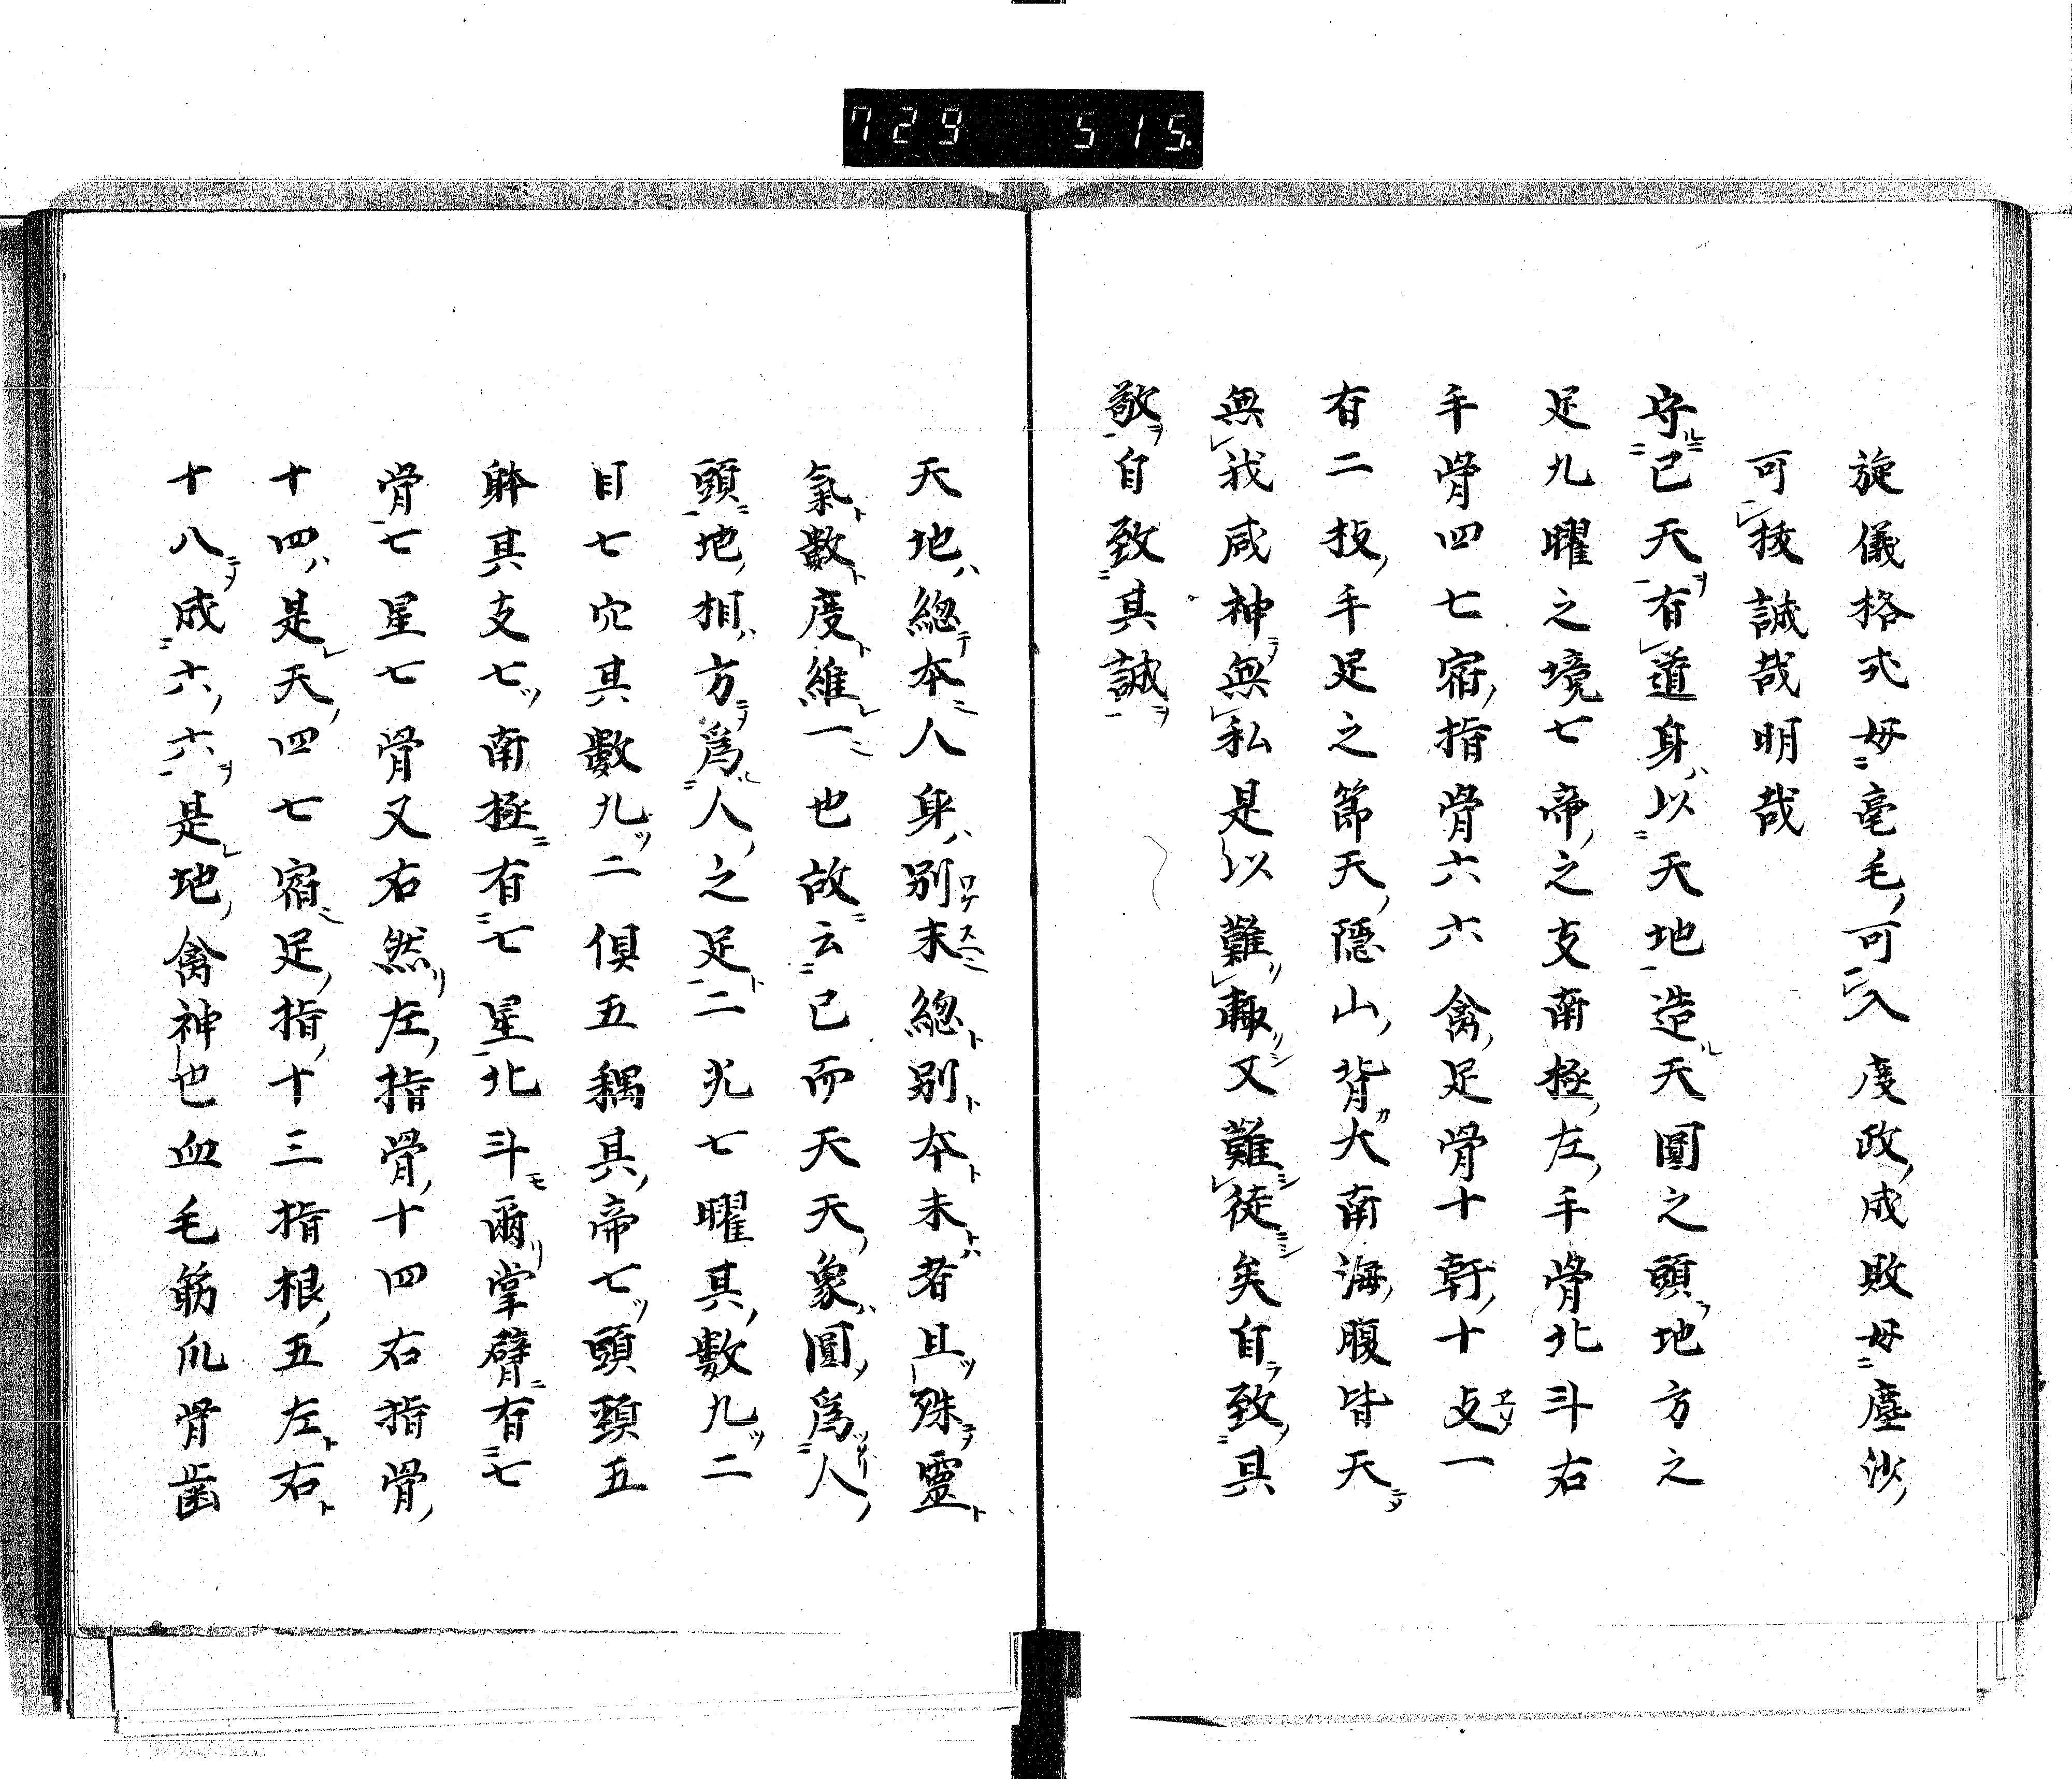 729 515
旋儀格式毋毫毛可入度政成敗毋塵沙
可拔誠哉明哉
守己天有道身以天地造天圓之頭地方之
足九曜之境七帝之支南極左手骨北斗右
手骨四七宿指骨六六禽足骨十幹十支一
有二技手足之節天隱山背大南海腹皆天
無我咸神無私是以難輙又難徒矣自致其
敬自致其誠
天地總本人身別末總別本末者且殊靈
氣數度維一也故云已而天天象圓爲人
頭地相方爲人之足二光七曜其數九二
目七穴其數九二俱五耦其帝七頭頸五
躰其支七南極有七星北斗爾掌臂有七
骨七星七骨又右然左指骨十四右指骨
十四是天四七宿足指十三指根五左右
十八成六六是地禽神也血毛筋爪骨齒